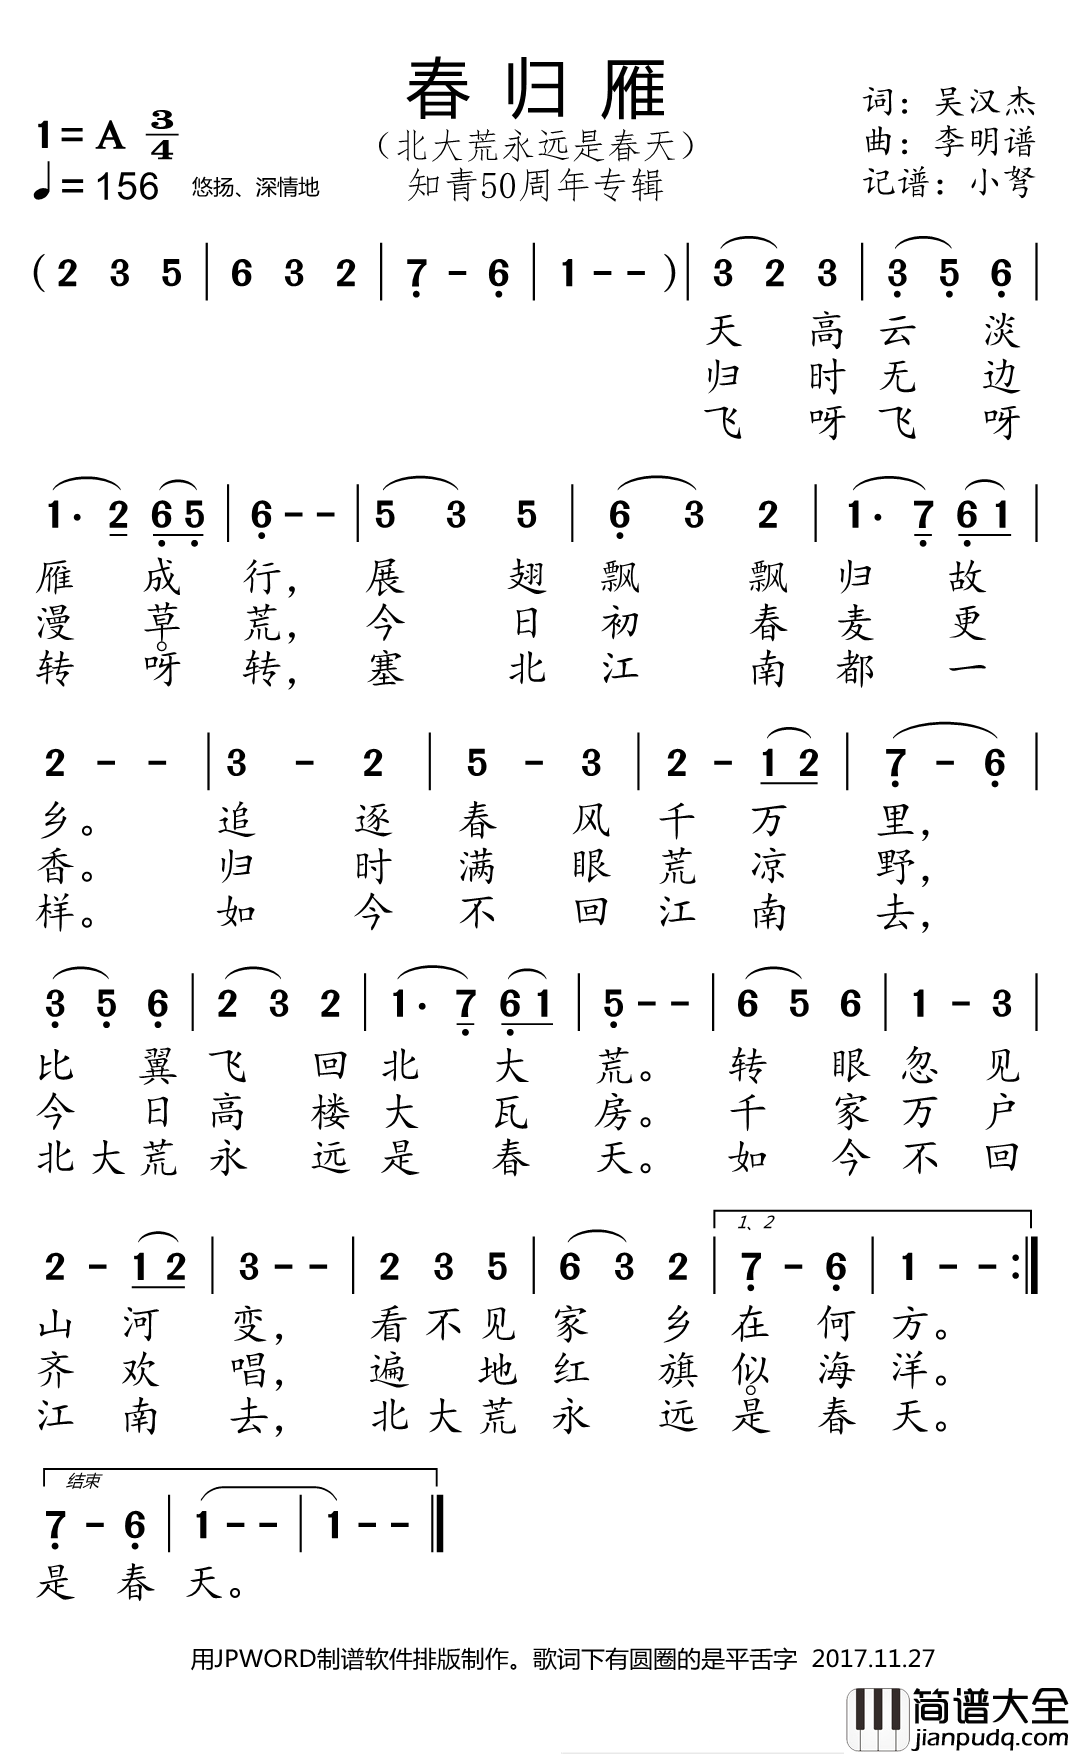 春归雁
（北大荒永远是春天）
知青50周年专辑
1=A 3/4
♩=156 悠扬、深情地
词：吴汉杰
曲：李明谱
记谱：小弩
(2 3 5 | 6 3 2 | 7̣ - 6̣ | 1 - - )| 3 2 3 | 3̣ 5̣ 6̣ |
天 高 云 淡
归 时 无 边
飞 呀 飞 呀
1· 2 6̣ 5̣ | 6̣ - - | 5 3 5 | 6̣ 3 2 | 1· 7̣ 6̣ 1 |
雁 成 行， 展 翅 飘 飘 归 故
漫 草 荒， 今 日 初 春 麦 更
转 呀 转， 塞 北 江 南 都 一
2 - - | 3 - 2 | 5 - 3 | 2 - 1 2 | 7̣ - 6̣ |
乡。 追 逐 春 风 千 万 里，
香。 归 时 满 眼 荒 凉 野，
样。 如 今 不 回 江 南 去，
3̣ 5̣ 6̣ | 2 3 2 | 1· 7̣ 6̣ 1 | 5̣ - - | 6 5 6 | 1 - 3 |
比 翼 飞 回 北 大 荒。 转 眼 忽 见
今 日 高 楼 大 瓦 房。 千 家 万 户
北 大 荒 永 远 是 春 天。 如 今 不 回
1、2
2 - 1 2 | 3 - - | 2 3 5 | 6 3 2 | 7̣ - 6̣ | 1 - - :|
山 河 变， 看 不 见 家 乡 在 何 方。
齐 欢 唱， 遍 地 红 旗 似 海 洋。
江 南 去， 北 大 荒 永 远 是 春 天。
结束
7̣ - 6̣ | 1 - - | 1 - - ‖
是 春 天。
用JPWORD制谱软件排版制作。歌词下有圆圈的是平舌字 2017.11.27
简谱大全
jianpudq.com